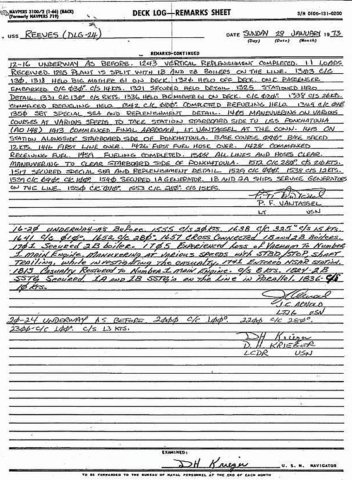 NAVPERS 3100/3 (1-66) (BACK)
(Formerly NAVPERS 719)
DECK LOG—REMARKS SHEET
S/N 0106-131-0200
USS REEVES (DLG-24) DATE SUNDAY 28 JANUARY 1973
(Day) (Date) (Month)
REMARKS-CONTINUED
12-16 UNDERWAY AS BEFORE. 1243 VERTICAL REPLENISHMENT COMPLETED. 11 LOADS
RECEIVED. PLANT IS SPLIT WITH 1B AND 2B BOILERS ON THE LINE. 1303 C/C
130. 1318 HELO BIG MOTHER 61 ON DECK. 1324 HELO OFF DECK. ONE PASSENGER
EMBARKED C/C 000° C/S 14 KTS. 1321 SECURED HELO DETAIL. 1325 STATIONED HELO
DETAIL. 1331 C/C 130° C/S 5 KTS. 1336 HELO BIG MOTHER ON DECK.
COMPLETED REFUELING HELO. 1342 C/C 000°. COMPLETED REFUELING HELO. 1344 C/C
1350 SET SPECIAL SEA AND REPLENISHMENT DETAIL. 1405 MANEUVERING ON VARIOUS
COURSES AT VARIOUS SPEEDS TO TAKE STATION STARBOARD SIDE TO USS PONCHATOULA
(AO 148) 1413 COMMENCED FINAL APPROACH, LT. VANTASSEL AT THE CONN. 1415 ON
STATION ALONGSIDE STARBOARD SIDE OF PONCHATOULA. BASE COURSE 000° BASE SPEED
12 KTS. 1416 FIRST LINE OVER. 1426 FIRST FUEL HOSE OVER. 1428 COMMENCED
RECEIVING FUEL. 1454 FUELING COMPLETED. 1504 ALL LINES AND HOSES CLEAR.
MANEUVERING TO CLEAR STARBOARD SIDE OF PONCHATOULA.
1517 SECURED SPECIAL SEA AND REPLENISHMENT DETAIL.
1540 SECURED 1A GENERATOR. 1B AND 2A SHIPS SERVICE GENERATORS
ON THE LINE.
P. F. VANTASSEL
LT USN
16-20 UNDERWAY AS BEFORE. 1555 C/S 20 KTS. 1638 C/C 325° C/S 15 KTS.
1641 C/C 010°. 1652 C/C 280°. 1657 CROSS CONNECTED 1B AND 2B BOILERS.
1701 SECURED 2B BOILER. 1705 EXPERIENCED LOSS OF VACUUM TO NUMBER
1 MAIN ENGINE, MANEUVERING AT VARIOUS SPEEDS WITH STBD/STOP SHAFT
TRAILING, WHILE INVESTIGATING THE CASUALTY. 1742 ENTERED STATION.
1813 CASUALTY RESTORED TO NUMBER 1 MAIN ENGINE. C/S 8 KTS. 2B
SSTG SECURED. 1A AND 1B SSTG'S ON THE LINE IN PARALLEL. 1836 C/S
10 KTS.
J. C. ARNOLD
LTJG USN
20-24 UNDERWAY AS BEFORE. 2000 C/C 100°. 2200 C/C 280°.
2300 C/C 100°. C/S 13 KTS.
DH Krieger
D. H. KRIEGER
LCDR USN
EXAMINED:
DH Krieger U. S. N. NAVIGATOR
TO BE FORWARDED TO THE BUREAU OF NAVAL PERSONNEL AT THE END OF EACH MONTH